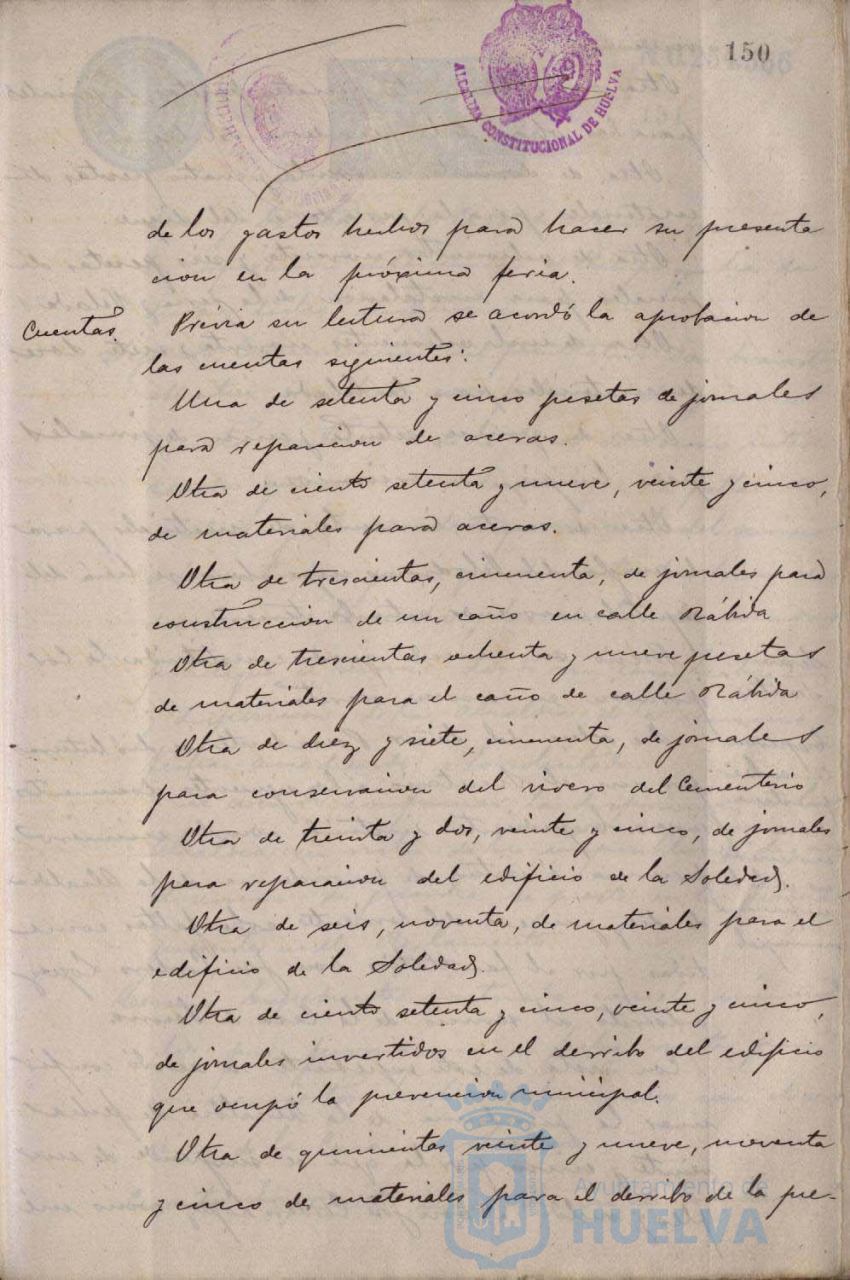 150
ALCALDIA CONSTITUCIONAL DE HUELVA
de los gastos hechos para hacer su presenta
cion en la próxima feria.
Cuentas. Prévia su lectura se acordó la aprobacion de
las cuentas siguientes:
Una de setenta y cinco pesetas de jornales
para reparacion de aceras.
Otra de ciento setenta y nueve, veinte y cinco,
de materiales para aceras.
Otra de trescientas, cincuenta, de jornales para
construccion de un caño en calle Rábida
Otra de trescientas ochenta y nueve pesetas
de materiales para el caño de calle Rábida
Otra de diez y siete, cincuenta, de jornales
para conservacion del vivero del Cementerio
Otra de treinta y dos, veinte y cinco, de jornales
para reparacion del edificio de la Soledad.
Otra de seis, noventa, de materiales para el
edificio de la Soledad.
Otra de ciento setenta y cinco, veinte y cinco,
de jornales invertidos en el derribo del edificio
que ocupó la prevencion municipal.
Otra de quinientas veinte y nueve, noventa
y cinco de materiales para el derribo de la pre-
Ayuntamiento de
HUELVA